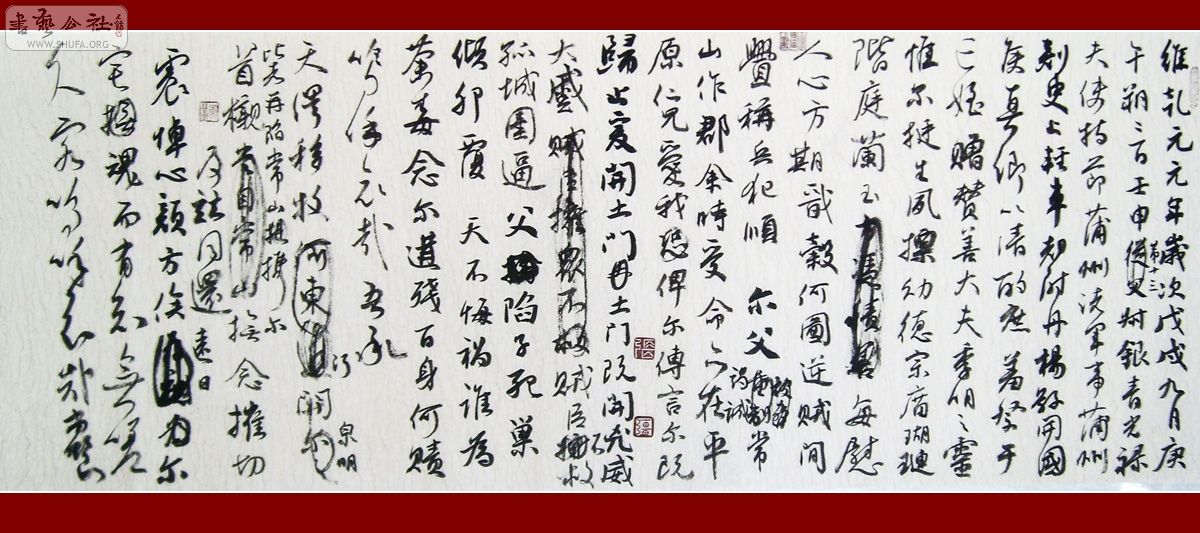 書藝公社
WWW.SHUFA.ORG
維乾元元年歲次戊戌九月庚
午朔三日壬申第十三叔銀青光祿
夫使持節蒲州諸軍事蒲州
刺史上輕車都尉丹楊縣開國
侯真卿以清酌庶羞祭于
亡姪贈贊善大夫季明之靈
惟爾挺生夙標幼德宗廟瑚璉
階庭蘭玉方憑積善每慰
人心方期戩穀何圖逆賊間
釁稱兵犯順爾父竭誠常
山作郡余時受命亦在平
原仁兄愛我恐俾爾傳言爾既
歸止爰開土門土門既開兇威
大蹙賊臣擁眾不救賊臣不救
孤城圍逼父陷子死巢
傾卵覆天不悔禍誰為
荼毒念爾遘殘百身何贖
嗚呼哀哉吾承
天澤移牧河東近河關泉明
比者再陷常山提攜爾
首櫬自常山撫念摧切
及茲同還遠日
震悼心顏方俟爾
宅魂而有知無嗟
久客嗚呼哀哉尚饗